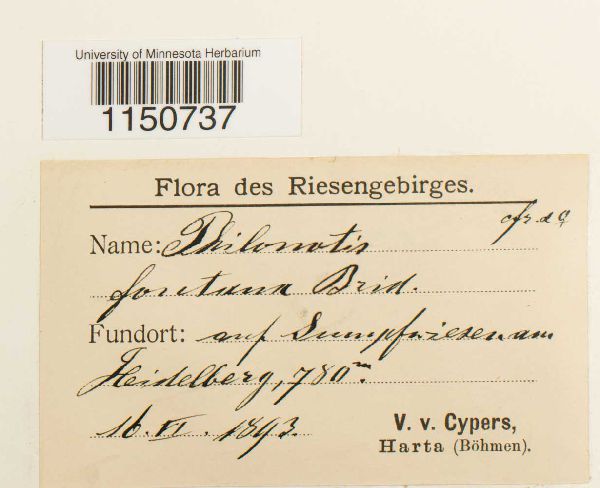 University of Minnesota Herbarium
1150737
Flora des Riesengebirges.
cfr. d ♀
Name: Philonotis
fontana Brid.
Fundort: auf Sumpfwiesen am
Heidelberg, 780 m.
16. VI. 1893.
V. v. Cypers,
Harta (Böhmen).